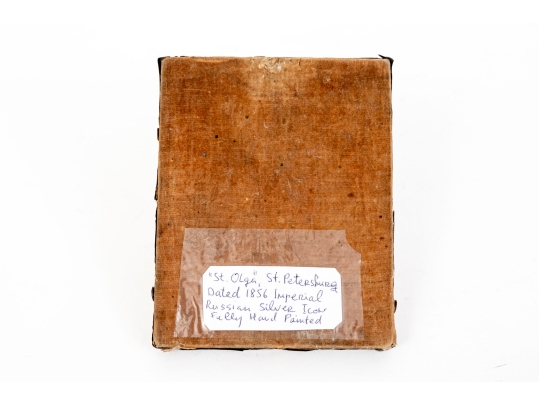 "St. Olga", St. Petersburg
Dated 1856 Imperial
Russian Silver Icon
Fully Hand Painted